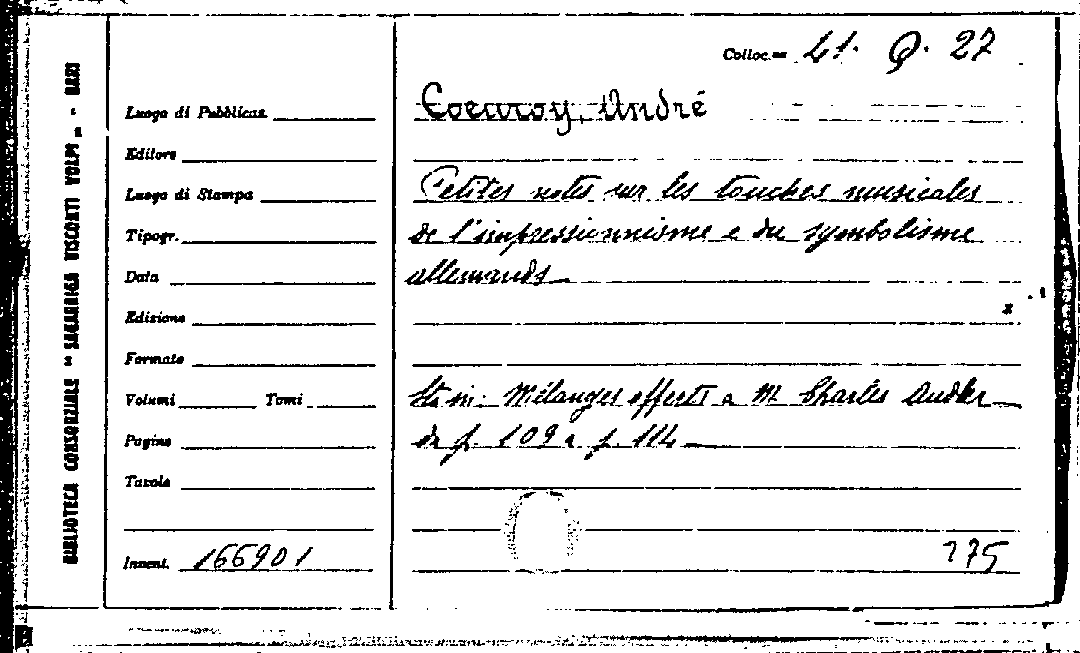 BIBLIOTECA CONSORZIALE "SAGARRIGA VISCONTI VOLPI" - BARI
Colloc. 41. Q. 27
Luogo di Pubblicaz.
Editore
Luogo di Stampa
Tipogr.
Data
Edizione
Formato
Volumi Tomi
Pagine
Tavole
Invent. 166901
Coeuroy, André
Petites notes sur les touches musicales
de l'impressionnisme e du symbolisme
allemands
Sta in: Mélanges offerts a M Charles Andler
da p. 109 a p. 114
275